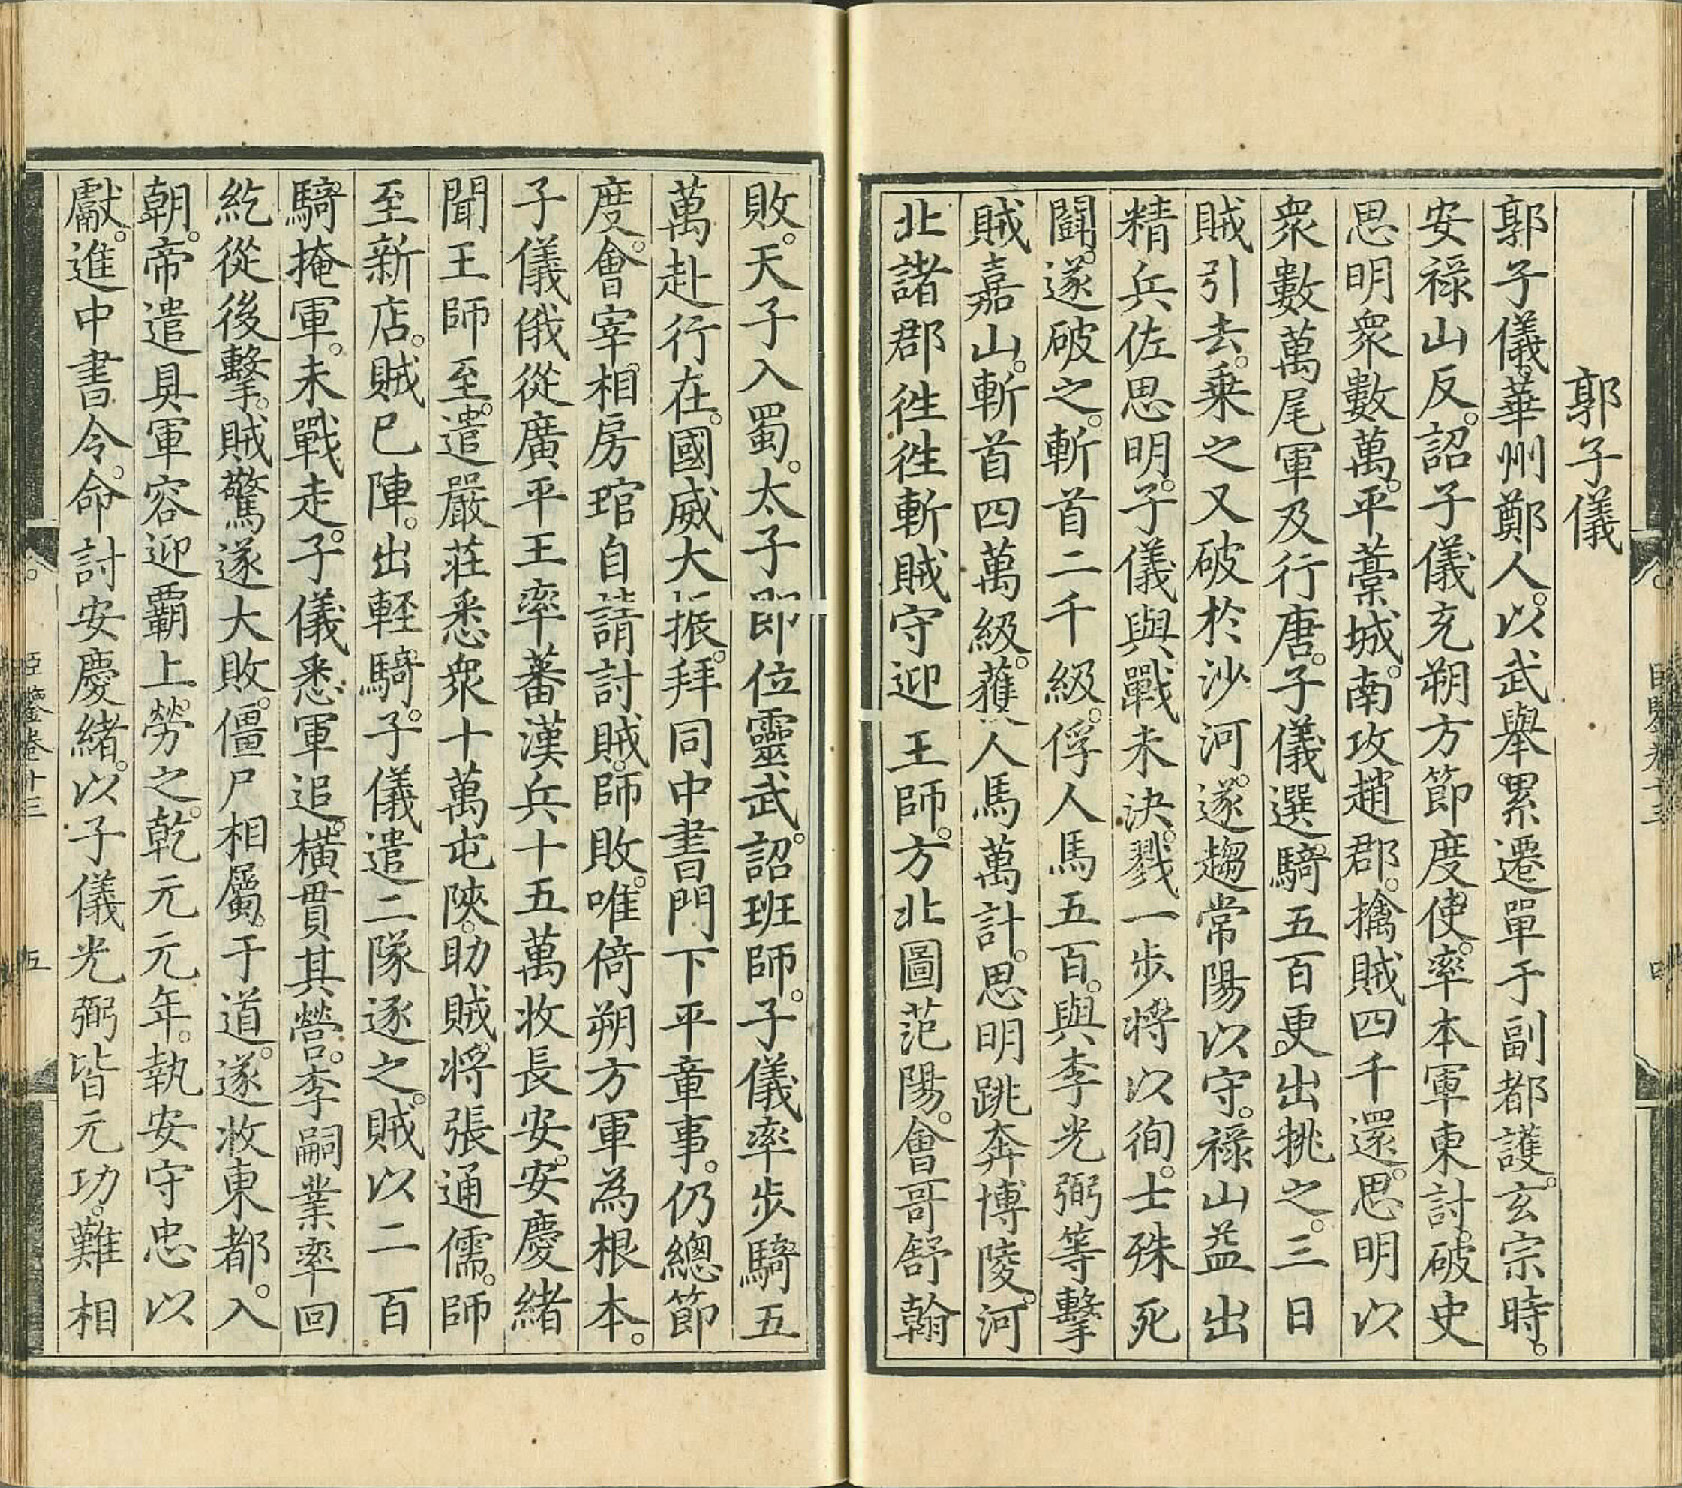 郭子儀
郭子儀。華州鄭人。以武舉。累遷單于副都護。玄宗時。
安禄山反。詔子儀充朔方節度使。率本軍東討。破史
思明衆數萬。平藁城。南攻趙郡。擒賊四千還。思明以
衆數萬尾軍及行唐。子儀選騎五百更。出挑之。三日
賊引去。乗之又破於沙河。遂趨常陽以守。禄山益出
精兵佐思明。子儀與戰未決。戮一步將以徇。士殊死
闘。遂破之。斬首二千級。俘人馬五百。與李光弼等擊
賊嘉山。斬首四萬級。獲人馬萬計。思明跳奔博陵。河
北諸郡徃徃斬賊守迎王師。方北圖范陽。會哥舒翰
敗。天子入蜀。太子即位靈武。詔班師。子儀率步騎五
萬赴行在。國威大振。拜同中書門下平章事。仍總節
度。會宰相房琯自請討賊。師敗。唯倚朔方軍為根本。
子儀俄從廣平王率蕃漢兵十五萬收長安。安慶緒
聞王師至。遣嚴荘悉衆十萬屯陝。助賊。將張通儒。師
至新店。賊已陣。出輕騎。子儀遣二隊逐之。賊以二百
騎掩軍。未戰走。子儀悉軍追。横貫其營。李嗣業率回
紇從後擊。賊驚遂大敗。僵尸相屬。于道。遂收東都。入
朝。帝遣具軍容迎覇上。勞之。乾元元年。執安守忠以
獻。進中書令。命討安慶緒。以子儀光弼皆元功。難相
臣鑒卷十三
五